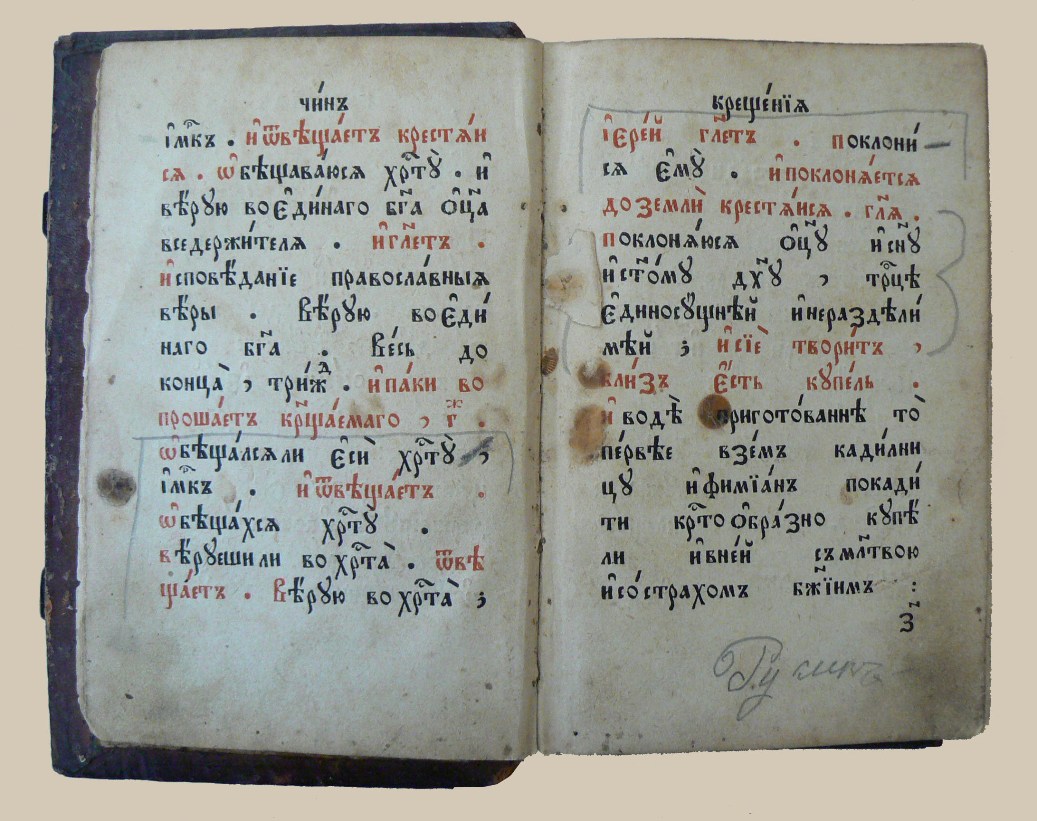 чи́нъ
і҆мⷬ҇къ . и҆ ѿвѣща́етъ крестѧ́и
сѧ . ѡ҆бѣщава́юсѧ хрⷭ҇тꙋ̀ . и҆
вѣ́рꙋю во є҆ди́наго бг҃а ѻ҆ц҃а
вседержи́телѧ . и҆ гл҃етъ .
и҆сповѣ́данїе правосла́вныѧ
вѣ́ры . Вѣ́рꙋю во є҆ди́
наго бг҃а . Ве́сь до
конца̀ , три́жⷣ . и҆ па́ки во
проша́етъ крⷭ҇ща́емаго , г҃ⷤ .
ѡ҆бѣща́лсѧ ли є҆сѝ хрⷭ҇тꙋ̀ ,
і҆мⷬ҇къ . и҆ ѿвѣща́етъ .
ѡ҆бѣща́хсѧ хрⷭ҇тꙋ̀ .
вѣ́рꙋеши ли во хрⷭ҇та̀ . ѿвѣ
ща́етъ . Вѣ́рꙋю во хрⷭ҇та̀ ;
креще́нїѧ
і҆ере́й гл҃етъ . поклони́
сѧ є҆мꙋ̀ . и҆ поклонѧ́етсѧ
до землѝ крестѧ́йсѧ . гл҃ѧ .
поклонѧ́юсѧ ѻ҆ц҃ꙋ̀ и҆ сн҃ꙋ
и҆ ст҃о́мꙋ дх҃ꙋ , трⷪ҇цѣ
є҆диносꙋ́щнѣй и҆ нераздѣли́
мѣй ; и҆ сїѐ твори́тъ ,
бли́зъ є҆́сть кꙋпе́ль .
и҆ водѣ̀ пригото́ваннѣ то́
пе́рвѣе взе́мъ кади́лни
цꙋ и҆ фимїа́нъ покади́
ти крⷭ҇тоѻбра́зно кꙋпѣ́
ли и҆ в не́й съ мл҃твою
и҆ со́ страхомъ бж҃їимъ :
з҃